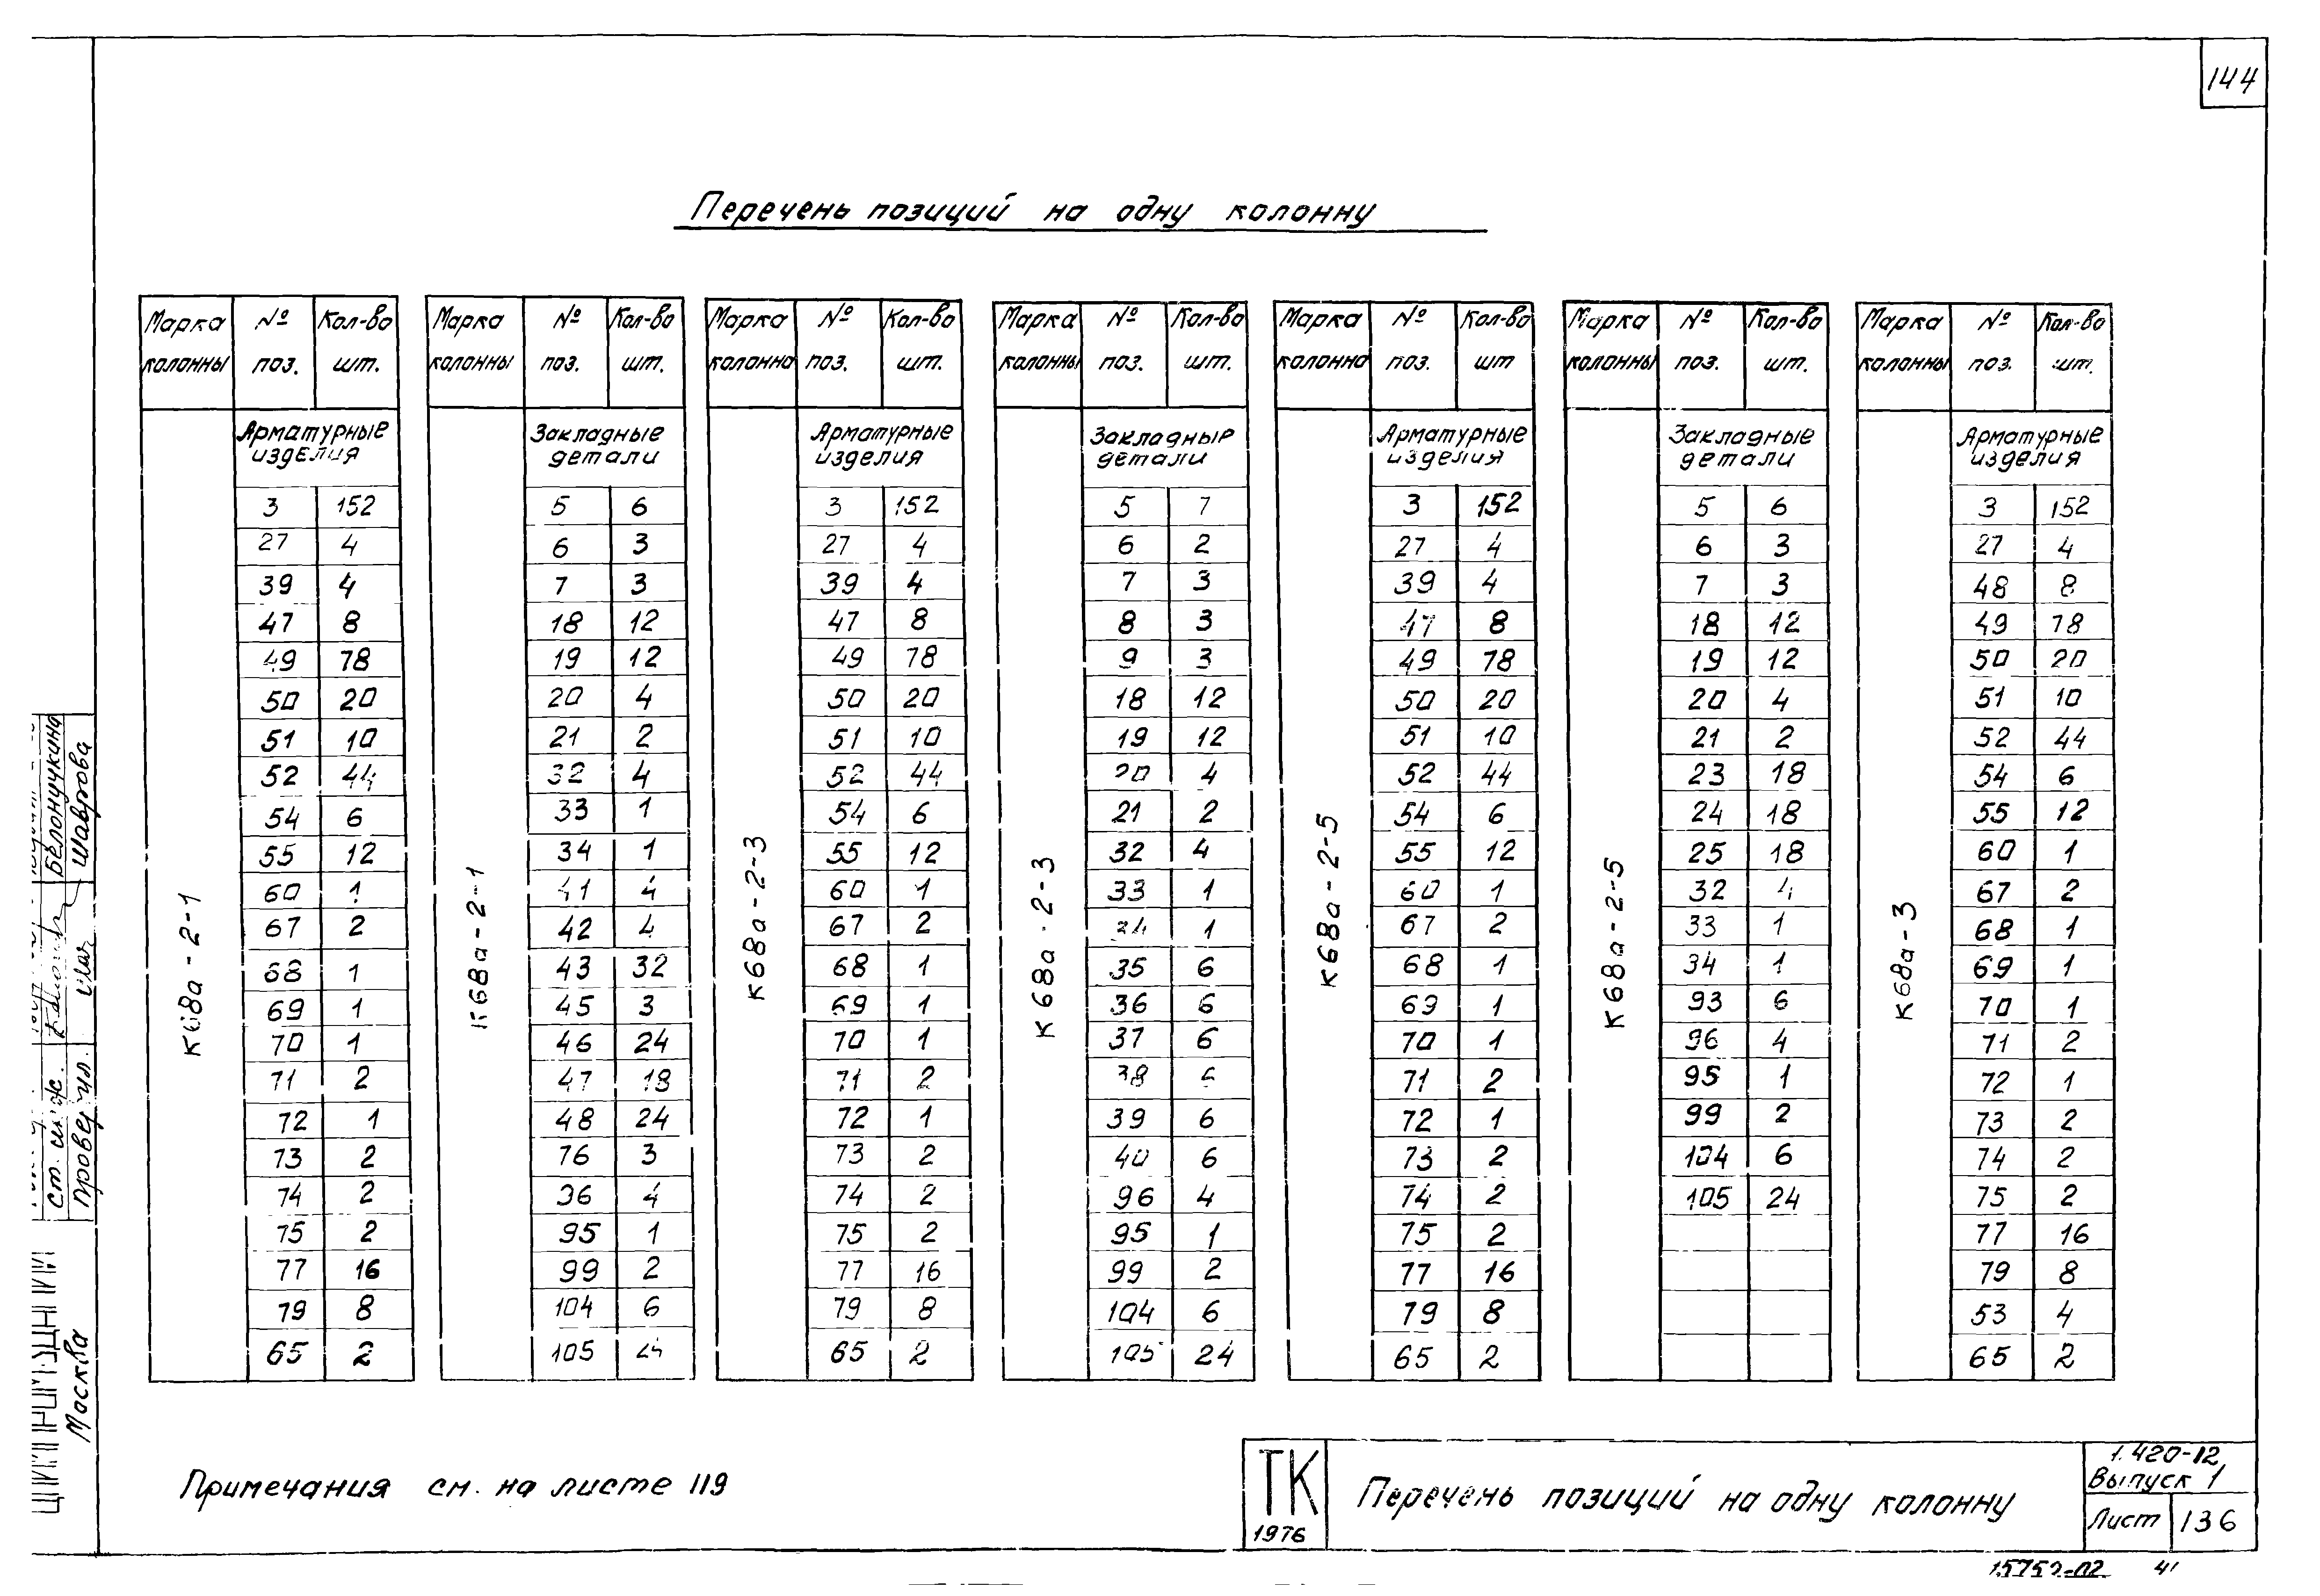 144
Перечень позиций на одну колонну
Марка колонны № поз. Кол-во шт.
К68а-2-1
Арматурные изделия
3 152
27 4
39 4
47 8
49 78
50 20
51 10
52 44
54 6
55 12
60 1
67 2
68 1
69 1
70 1
71 2
72 1
73 2
74 2
75 2
77 16
79 8
65 2
Марка колонны № поз. Кол-во шт.
К68а-2-1
Закладные детали
5 6
6 3
7 3
18 12
19 12
20 4
21 2
32 4
33 1
34 1
41 4
42 4
43 32
45 3
46 24
47 18
48 24
76 3
96 4
95 1
99 2
104 6
105 24
Марка колонна № поз. Кол-во шт.
К68а-2-3
Арматурные изделия
3 152
27 4
39 4
47 8
49 78
50 20
51 10
52 44
54 6
55 12
60 1
67 2
68 1
69 1
70 1
71 2
72 1
73 2
74 2
75 2
77 16
79 8
65 2
Марка колонны № поз. Кол-во шт.
К68а-2-3
Закладные детали
5 7
6 2
7 3
8 3
9 3
18 12
19 12
20 4
21 2
32 4
33 1
34 1
35 6
36 6
37 6
38 6
39 6
40 6
96 4
95 1
99 2
104 6
105 24
Марка колонна № поз. Кол-во шт
К68а-2-5
Арматурные изделия
3 152
27 4
39 4
47 8
49 78
50 20
51 10
52 44
54 6
55 12
60 1
67 2
68 1
69 1
70 1
71 2
72 1
73 2
74 2
75 2
77 16
79 8
65 2
Марка колонны № поз. Кол-во шт.
К68а-2-5
Закладные детали
5 6
6 3
7 3
18 12
19 12
20 4
21 2
23 18
24 18
25 18
32 4
33 1
34 1
93 6
96 4
95 1
99 2
104 6
105 24
Марка колонны № поз. Кол-во шт.
К68а-3
Арматурные изделия
3 152
27 4
48 8
49 78
50 20
51 10
52 44
54 6
55 12
60 1
67 2
68 1
69 1
70 1
71 2
72 1
73 2
74 2
75 2
77 16
79 8
53 4
65 2
Примечания см. на листе 119
ТК
1976
Перечень позиций на одну колонну
1.420-12
Выпуск 1
Лист 136
15752-02 41
Ст. инж. Белонучкина
Проверил Шаврова
Москва